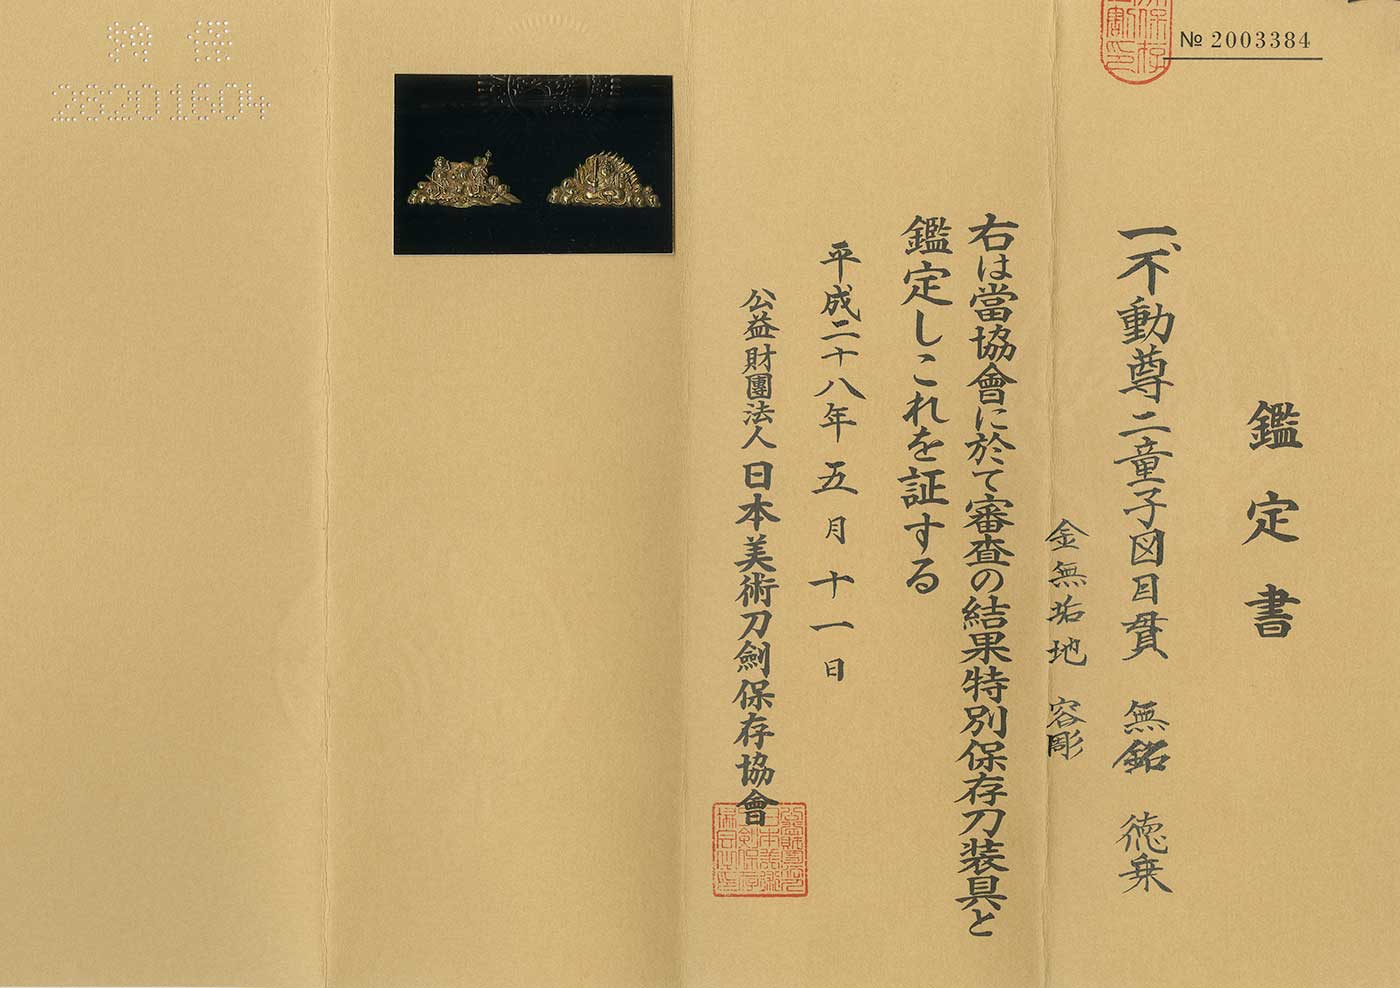 № 2003384
鑑定書
一、不動尊二童子図目貫 無銘 徳乗
金無垢地 容彫
右は當協會に於て審査の結果特別保存刀装具と
鑑定しこれを証する
平成二十八年五月十一日
公益財團法人日本美術刀劍保存協會
28201604